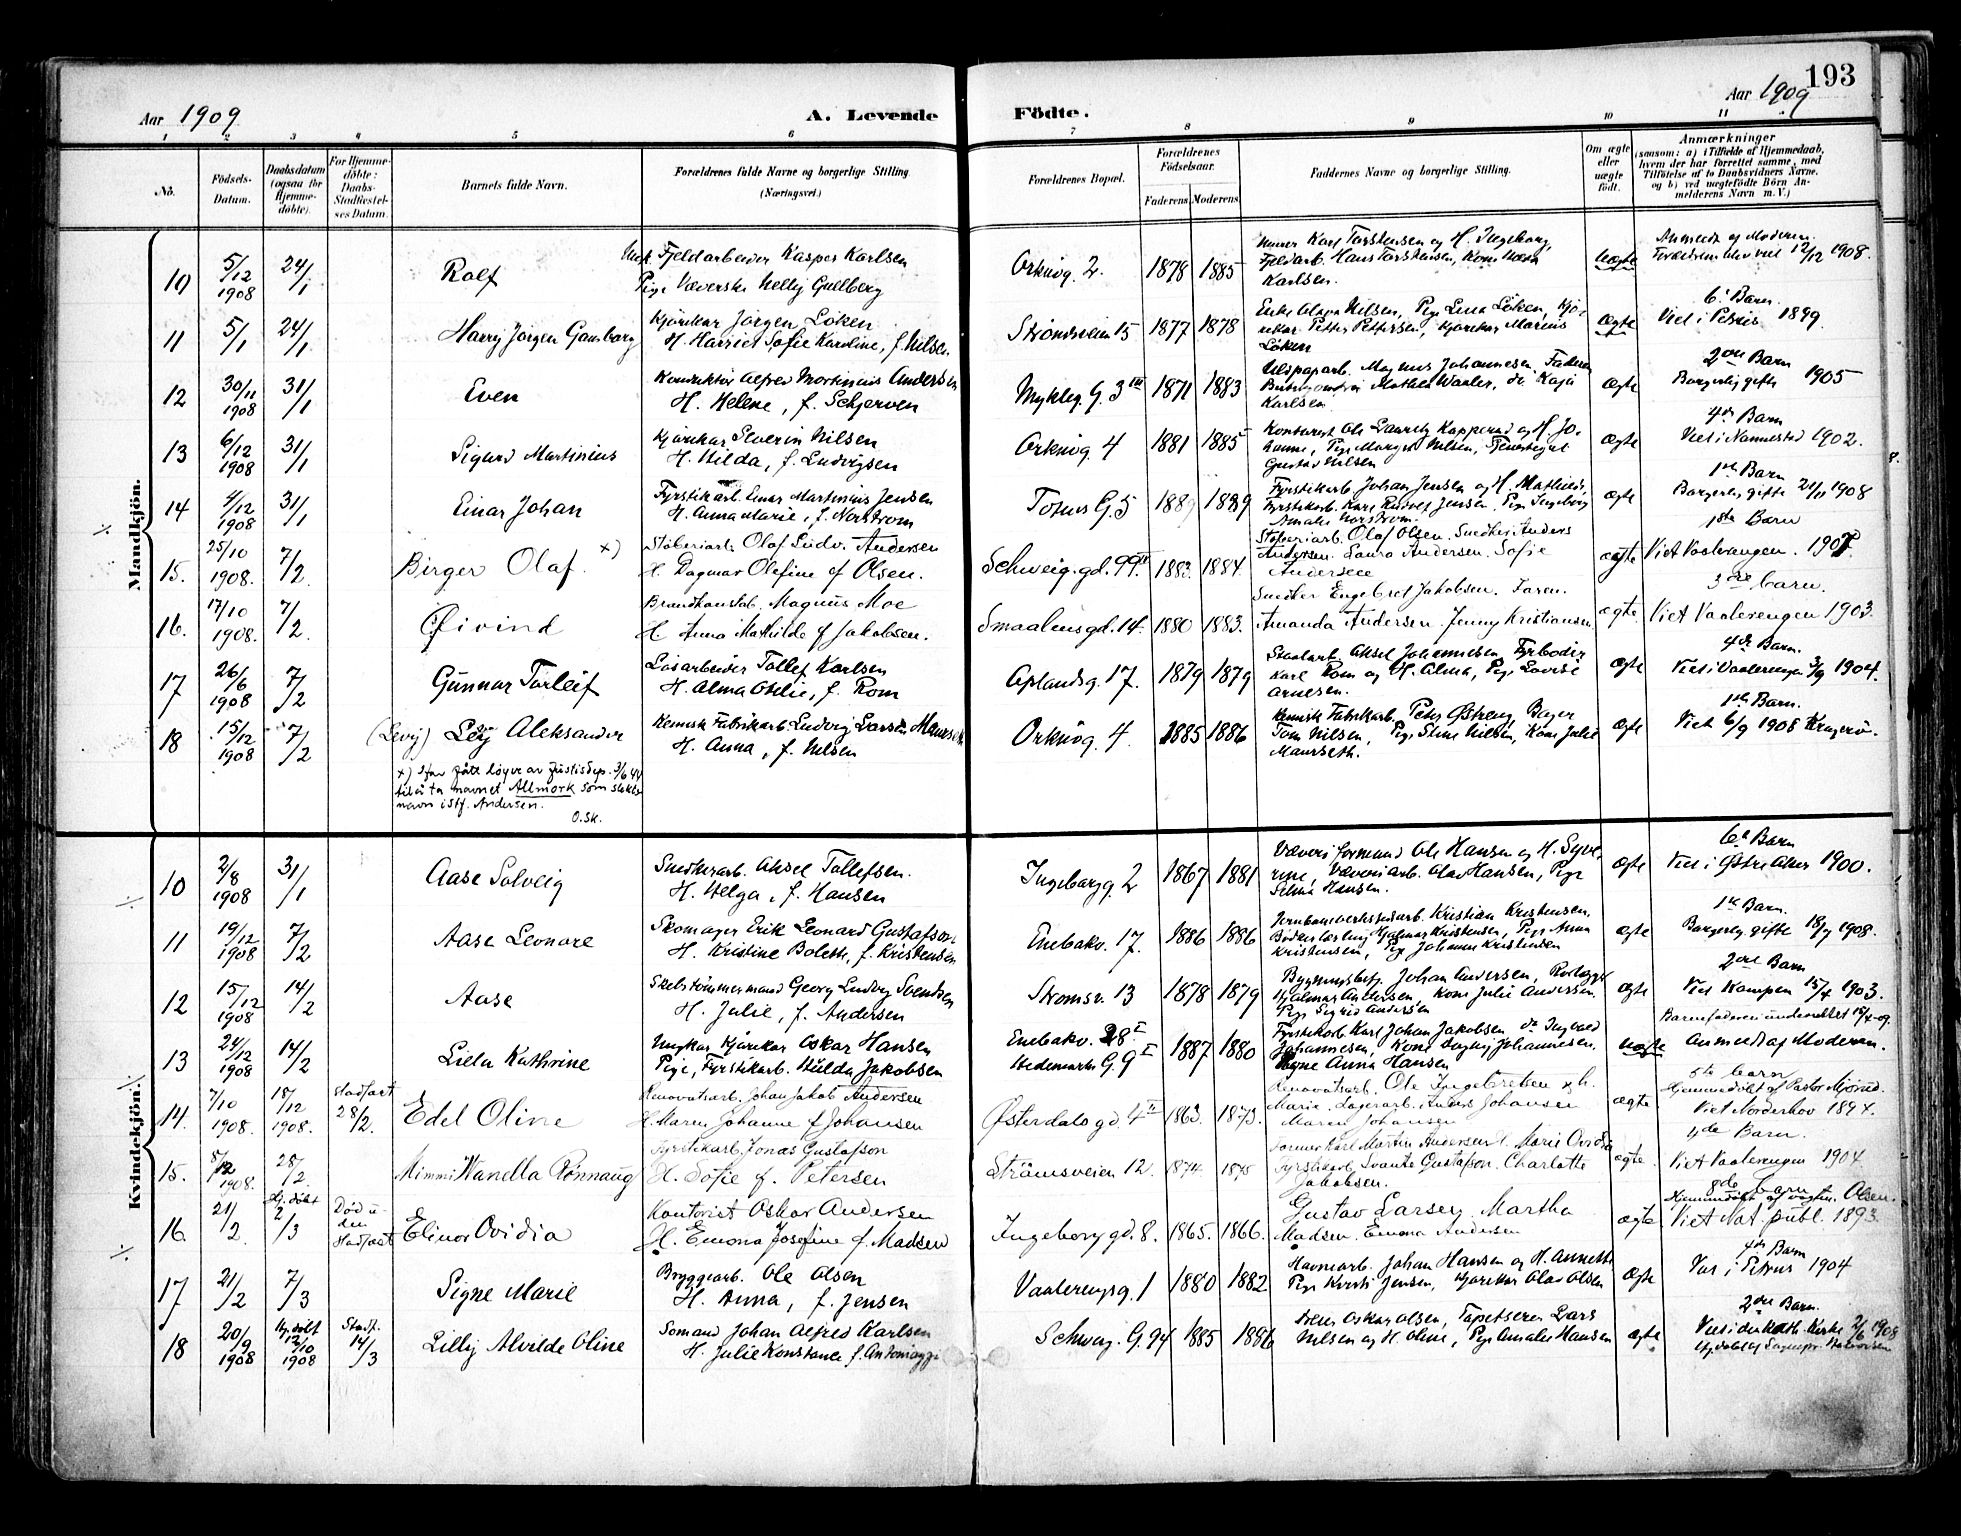 193
Aar 1909
A. Levende
Födte.
Aar 1909
1 2 3 4 5 6 7 8 9 10 11
No.
Födsels-
Datum.
Daabsdatum
(ogsaa for
Hjemme-
døbte).
For Hjemme-
döbte:
Daabs-
Stadfæstel-
ses Datum.
Barnets fulde Navn.
Forældrenes fulde Navne og borgerlige Stilling
(Næringsvei.)
Forældrenes Bopæl.
Forældrenes
Födselsaar.
Faderens. Moderens.
Faddernes Navne og borgerlige Stilling.
Om ægte
eller
uægte
födt.
Anmærkninger
(saasom: a) i Tilfælde af Hjemmedaab,
hvem der har forrettet samme, med
Tilföielse af to Daabsvidners Navne,
og b) ved uægtefödte Börn An-
melderens Navn m. V.)
Mandkjön.
10 5/12 1908 24/1 Rolf
Fjeldarbeider Kasper Karlsen
Pige Væverske Nelly Gullberg
Orknög. 2. 1878 1885
Murer Karl Torstensen og H. Ingeborg,
Fjeldarb. Hans Torstensen, Kone
Karlsen.
uægte
Anmeldt af Moderen.
12/12 1908.
11 5/1 24/1 Harry Jörgen Gansborg
Kjörekar Jörgen Löken
H. Harriet Sofie Karoline, f. Nilsen
Strömsveien 15 1877 1878
Olava Nilsen, Pige Lina Löken, Kjö-
rekar Petter Pettersen, Kjörekar Marius
Löken
ægte
6te Barn.
Viet i Petrus 1899.
12 30/11 1908 31/1 Even
Konduktör Alfred Mortinius Andersen
H. Helene, f. Schjerven
Mykleg. G. 3 III 1871 1883
Magnus Johannesen, Faderen
Mathea Waaler, do Kaja
Karlsen
ægte
2det Barn
Borgerlig gifte 1905
13 6/12 1908 31/1 Sigurd Martinius
Kjörekar Severin Nilsen
H. Hilda, f. Ludvigsen
Orknög. 4 1881 1885
Kontorist Ole Laurits Kapperud og H. Jo-
hanne, Pige Margit Nilsen,
Gustav Nilsen
ægte
4de Barn
Viet i Nannestad 1902.
14 4/12 1908 31/1 Einar Johan
Fyrstikarb. Einar Martinius Jensen
H. Anna Marie, f. Norström
Totens G. 5 1889 1889
Fyrstikarb. Johan Jensen og H. Mathilde,
Fyrstikarb. Karl Rudolf Jensen, Pige Ingeborg
Amalie Norström.
ægte
1ste Barn
Borgerlig gifte 21/11 1908
15. 25/10 1908. 7/2. Birger Olaf. x)
Støberiarb. Olaf Ludv. Andersen
H. Dagmar Olefine f Olsen.
Schweig. gd. 99 II 1883. 1884.
Støberiarb. Olaf Olsen. Snedker Anders
Andersen. Laura Andersen. Sofie
Andersen
ægte
1ste Barn
Viet Vaalerengen. 1907.
16. 17/10 1908. 7/2. Øivind
Brandkonstab. Magnus Moe
H. Anna Mathilde f Jakobsen.
Smaalensgd. 14. 1880 1883.
Snedker Engebret Jakobsen. Faren.
Amanda Andersen. Jenny Kristiansen
ægte
3die barn.
Viet Vaalerengen 1903.
17 26/6 1908 7/2 Gunnar Torleif
Løsarbeider Tollef Karlsen
H. Alma Otelie, f. Rom
Oplandsg. 17. 1879 1879
Staalarb. Aksel Johannesen, Fyrböder
Karl Rom og H. Alma, Pige Lovise
Arnesen.
ægte
4de Barn.
Viet i Vaalerengen 3/9 1904.
18 15/12 1908 7/2 (Levy) Levy Aleksander
Kemisk Fabrikarb. Ludvig Larsen Maurseth
H. Anna, f. Nilsen
Orknög. 4. 1885 1886
Kemisk Fabrikarb. Peter Østreng, Bager
Tom Nilsen, Pige Stine Nilsen, Kone Julie
Maurseth.
ægte
1ste Barn.
Viet 6/9 1908 Kragerö.
x) Har fått löyve av Justisdep. 3/6 44
til å ta navnet Allmork som slekts-
navn istf. Andersen.
O.Sk.
Kvindekjön.
10 2/8 1908 31/1 Aase Solveig
Snedkerarb. Aksel Tollefsen.
H. Helga, f. Hansen
Ingeborgg. 2 1867 1881
Væveriformand Ole Hansen og H. Syve-
rine, Væveriarb. Olav Hansen, Pige
Selma Hansen.
ægte
6te Barn
Viet i Østre Aker 1900.
11 19/12 1908 7/2 Aase Leonore
Skomager Erik Leonard Gustafson
H. Kristine Bolette, f. Kristensen
Enebakv. 17. 1886 1886
Jernbaneverkstedarb. Kristian Kristensen,
Bödkerlærling Hjalmar Kristensen, Pige Anna
Kristensen, Pige Johanne Kristensen
ægte
1ste Barn.
Borgerlig gifte 18/7 1908.
12 15/12 1908 14/2 Aase
Skibstömmermand Georg Ludvig Svendsen
H. Julie, f. Andersen
Strömsv. 13 1878 1879
Johan Andersen,
Hjalmar Andersen, Kone Julie Andersen.
Pige Sigrid Andersen
ægte
2det Barn
Viet Kampen 15/4 1903.
13 24/12 1908 14/2 Lilla Kathrine
Ungkar Kjörekar Oskar Hansen
Pige, Fyrstikarb. Hulda Jakobsen
Enebakv. 28 I
Hedemarks G. 9 I 1887 1880
Fyrstikarb. Karl Johan Jakobsen do Ingvald
Johannesen, Kone Dagny Johannesen.
Anna Hansen
uægte
Barnefaderen underrettet 19/4 09.
Anmeldt af Moderen.
14. 7/10 1908. 18/12 1908. Stadfæst 28/2. Edel Oline
Renovatiarb. Johan Jakob Andersen
H. Maren Johanne f Johansen
Østerdalsgd. 4 II 1863. 1873.
Renovatiarb. Ole Ingebretsen og h.
Marie. Lagerarb. Anders Johansen
Maren Johansen
ægte
Hjemmedöbt af Pastor Mjöned.
Viet Norderhov 1894.
15. 8/12 1908. 28/2. Mimmi Wanella Rønnaug
Fyrstikarb. Jonas Gustafson
H. Sofie f. Petersen
Strömsveien 12. 1874 1875
Former Karl Martin Andersen H. Marie Ovidia
Fyrstikarb. Svante Gustafson. Charlotte
Jakobsen.
ægte.
4de Barn.
Viet Vaalerengen 1904
16 21/2 Hj. döbt 2/3 Död u-
den
Stadfæst Elinor Ovidia
Kontorist Oskar Andersen
H. Emma Josefine f. Madsen
Ingeborggd. 8. 1865. 1866.
Gustav Larsen. Martha
Madsen. Emma Andersen
ægte
8de barn
Hjemmedöbt af vogtm. Olsen.
Viet Nat. publ. 1893.
17 21/2 7/3 Signe Marie
Bryggearb. Ole Olsen
H. Anna, f. Jensen
Vaalerengsg. 1 1880 1882
Havnearb. Johan Hansen og H. Annette
Pige Kirsti Jensen, Kjörekar Olav Olsen
ægte
4de Barn
Viet i Petrus 1904
18 20/9 1908 Hj. döbt 12/10 1908 Stadf. 14/3 Lilly Alvilde Oline
Sömand Johan Alfred Karlsen
H. Julie Konstance f. Antoniaggi
Schweig. G. 94 1885 1886
Oskar Olsen, Tapetserer Lars
Nilsen og H. Oline, Pige Amalie Hansen
ægte
2det Barn.
Viet i den kath. Kirke 2/6 1908